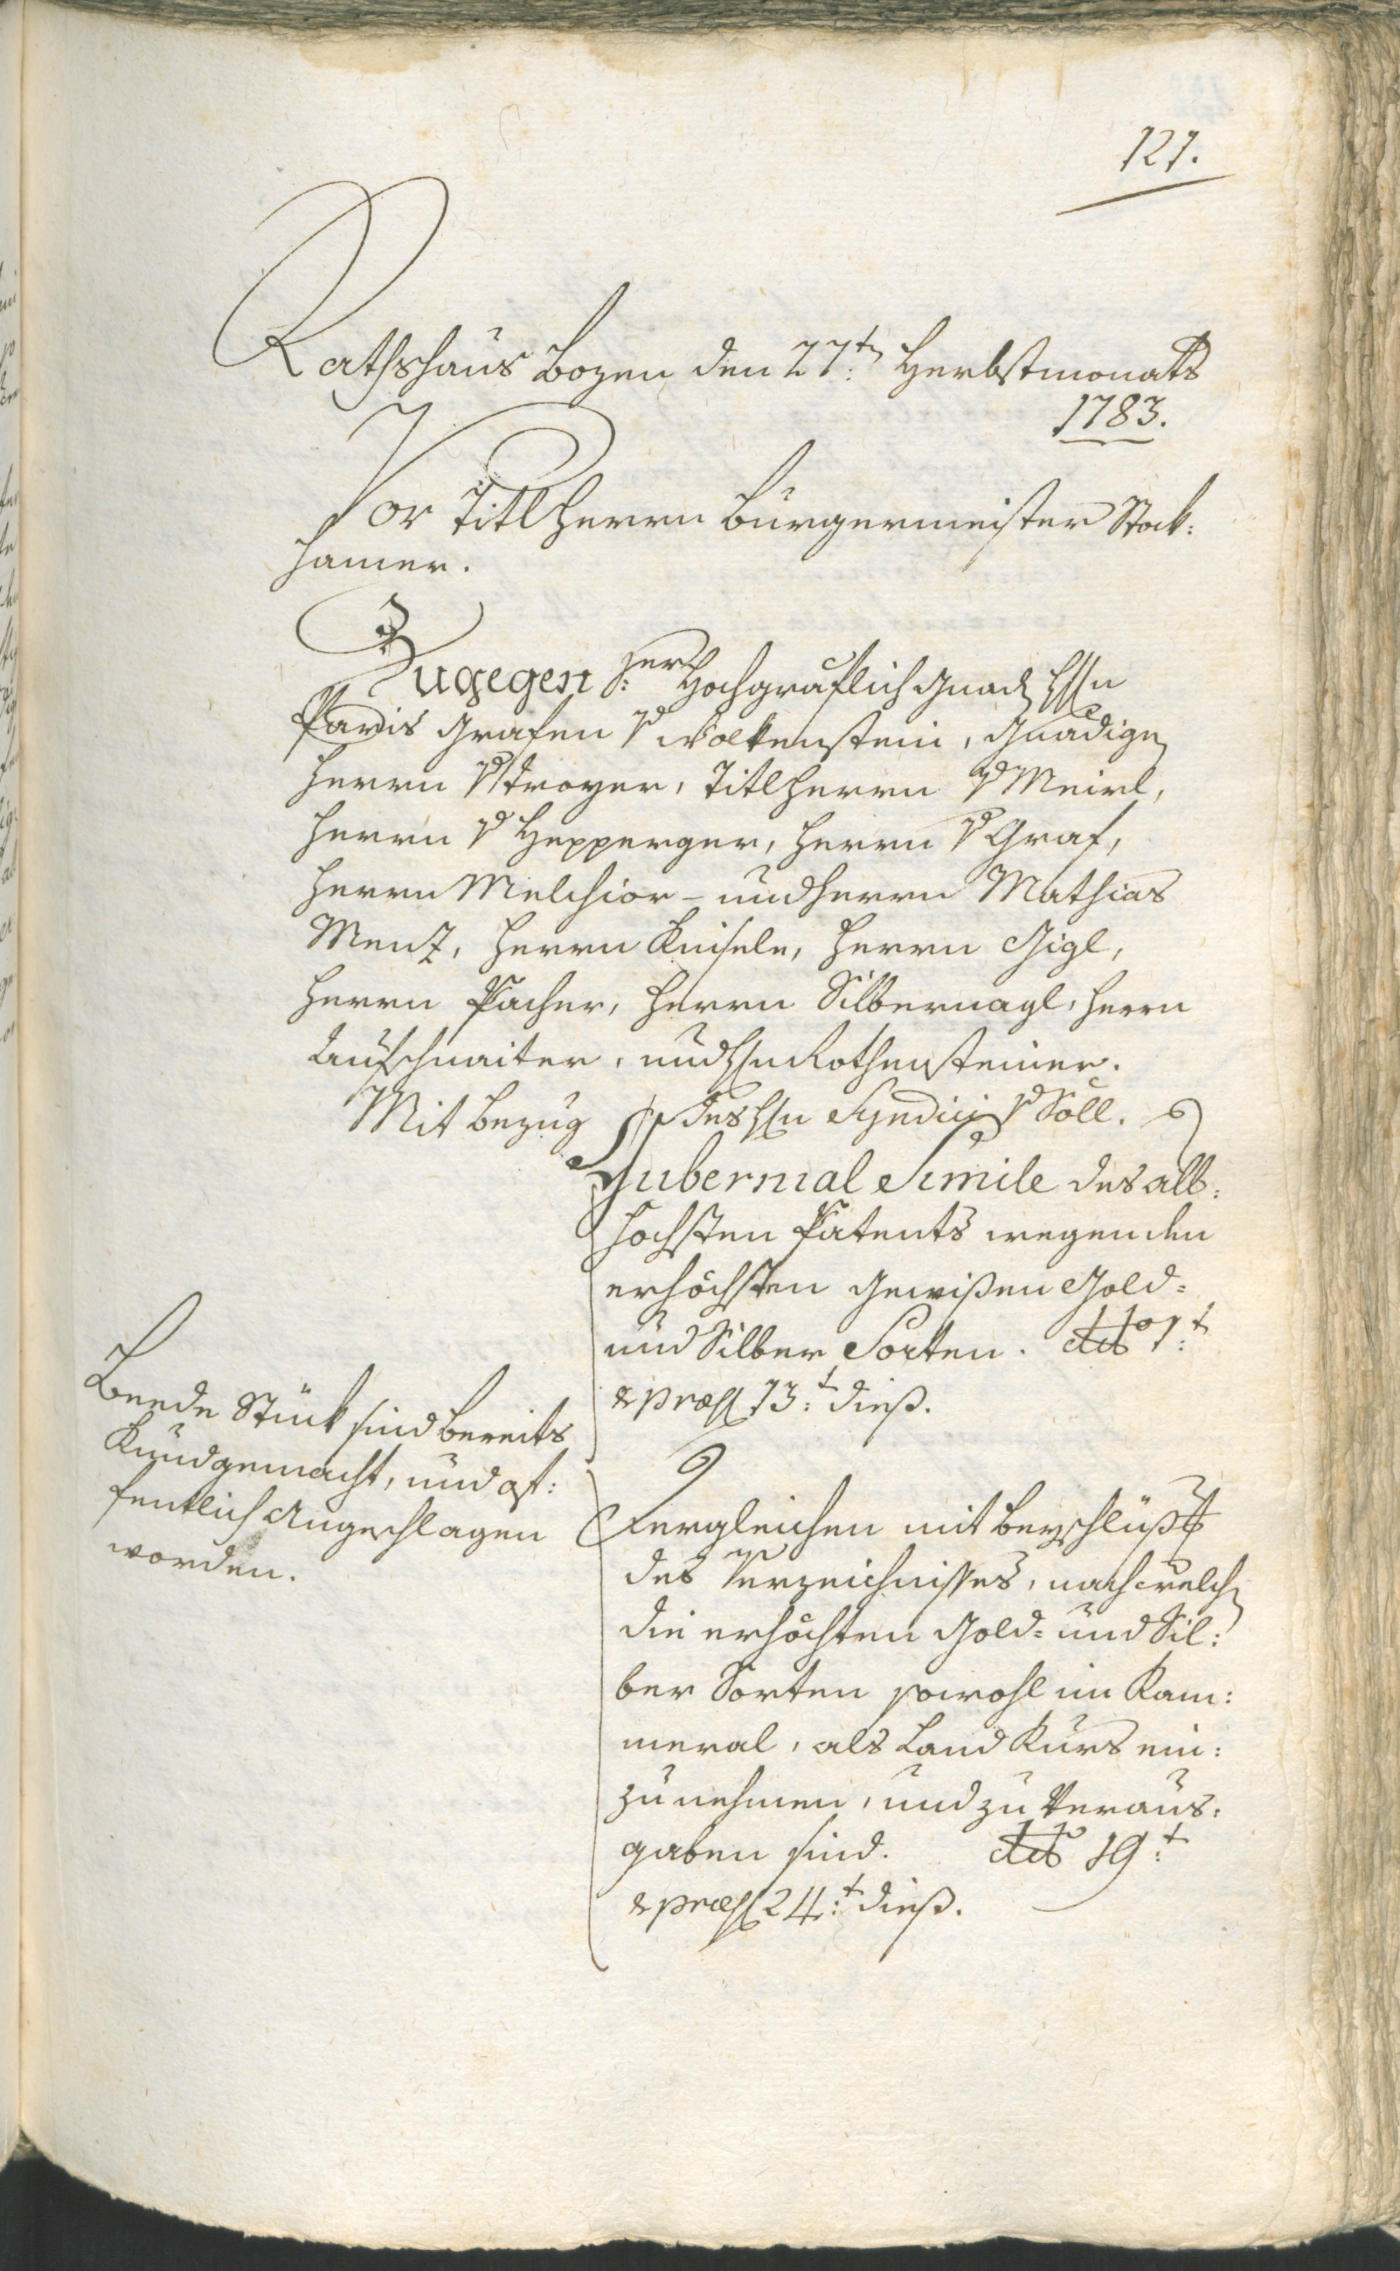 121.
Rathshaus Bozen den 27tn Herbstmonats
1783.
Vor Titl Herrn Bürgermeister Stock:
hamer.
Zugegen Sr: Hochgräflich Gnad Hrn
Paris Grafen v Wolkenstein, Gnädign
Herrn v Troyer, Titl Herrn v Meirl,
Herrn v Hepperger, Herrn v Graf,
Herrn Melchior- und Herrn Mathias
Menz, Herrn Kniseln, Herrn Gigl,
Herrn Pacher, Herrn Silbernagl, Herrn
Aufschnaiter, und Hrn Rothensteiner.
Mit Bezug des Hrn Syndici v Söll.
Gubernial Simile des all:
höchsten Patents wegen den
erhöchsten Gewißen Gold-
und Silber Sorten. dto 1t
& præs 13:t dieß.
Beede Stück sind bereits
Kundgemacht, und öf:
fentlich Angeschlagen
worden.
Dergleichen mit Beyschlüß
des Verzeichnisses, nach welchn
die erhöchten Gold- und Sil:
ber Sorten sowohl im Kam:
meral, als Land Kurs ein:
zunehmen, und zu Veraus:
gaben sind. dto 19:t
& præs 24:t dieß.